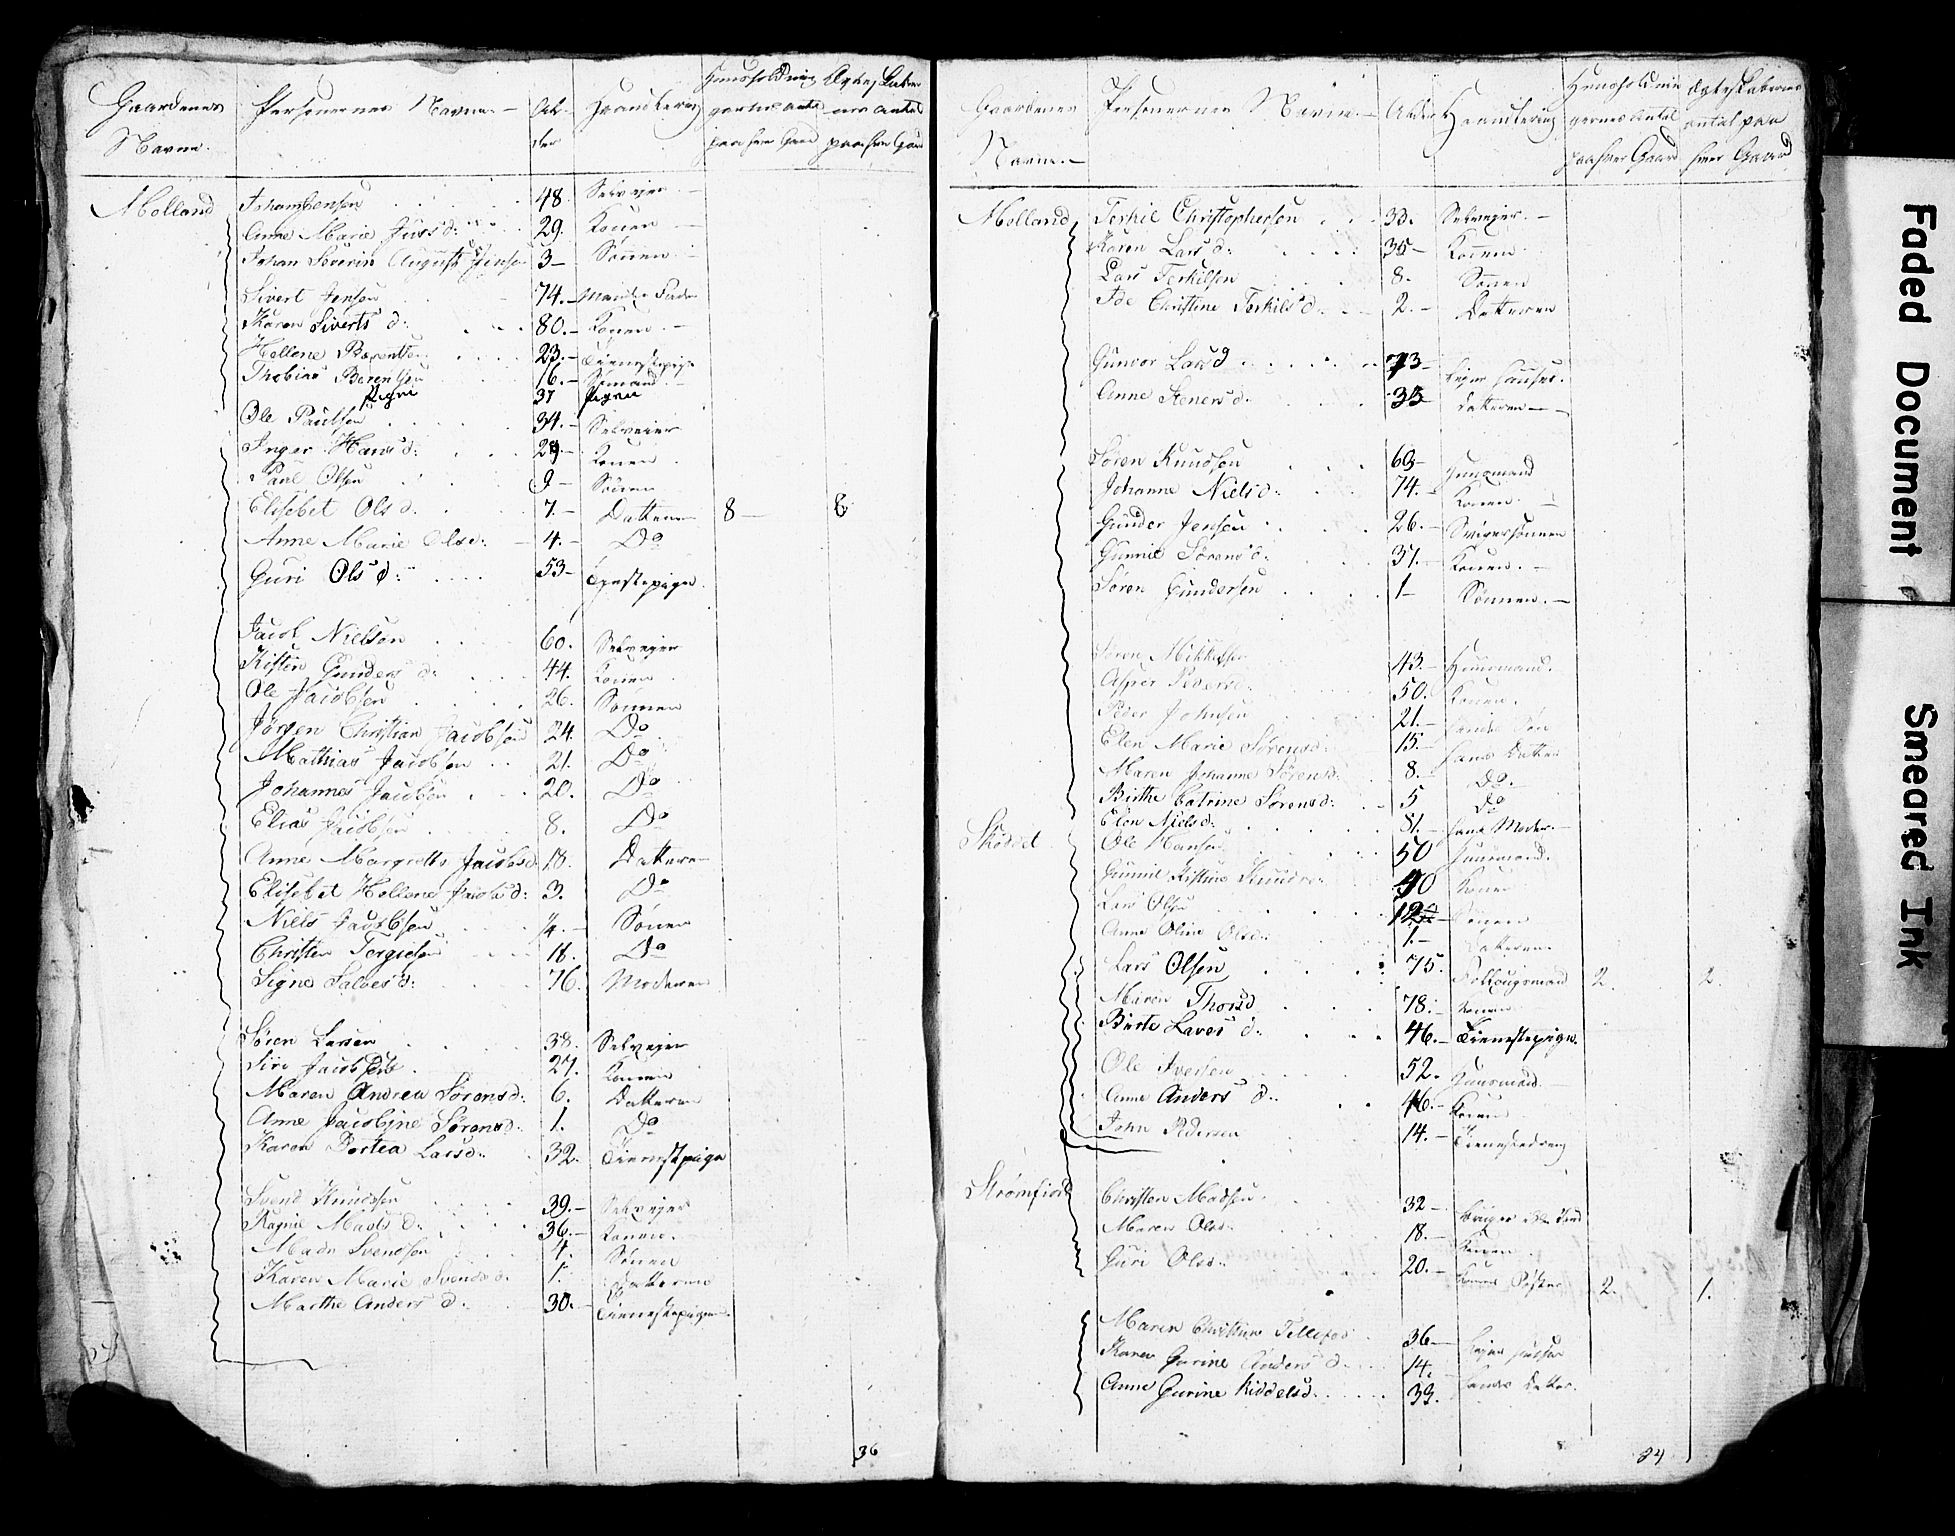 Gaardenes Navne. Personernes Navne. Alder Haandtering
Molland Johan Jensen 48 Selveier
Anne Marie Jensd: 29. Konen
Johan Severin August Jensen 3 Sönnen
Sivert Jensen 74. Mandens Fader
Karen Siverts d: 80. Konen
Hellene Berentsen 23. Tienestepige
Thobias Berentsen 16. Sömand
Signe 37 Pigen
Ole Paulsen 34. Selveier
Inger Hansd: 29. Konen
Paul Olsen 9 Sönen
Elisebet Olsd. 7. Datteren 8 8
Anne Marie Olsd: 4. Do
Guri Olsd: 53 Tienstepige
Jacob Nielsen 60. Selveier
Kistin Gunders d: 44. Konen
Ole Jacobsen 26. Sönnen
Jörgen Christian Jacobsen 24. Do
Mathias Jacobsen 21. Do
Johannes Jacobsen 20. Do
Elias Jacobsen 8. Do
Anne Margrethe Jacobsd 18. Datteren
Elisebet Hellene Jacobsd: 3. Do
Niels Jacobsen 4. Sönen
Christen Tergiesen 18. Do
Signe Salves d: 76. Moderen
Sören Larsen 38. Selveier
Siri Jacobsd 27. Konen
Maren Andrea Sörensd: 6. Datteren
Anne Jacobine Sörensd: 1. Do
Karen Dortea Larsd: 32. Tienestepige
Svend Knudsen 39. Selveier
Ragnil Mads d: 36. Konen
Mads Svendsen 4. Sönen
Karen Marie Svends d. 1. Datteren
Marthe Anders d. 30. Tienestepigen
36
Gaardenes Navne. Personernes Navne. Alder Haandtering Huusholdningernes Antal paa hver Gaard Egteskabernes antal paa hver Gaard
Molland Terkil Christophersen 33. Selveier
Karen Larsd: 35 Konen
Lars Terkilsen 8. Sönen
Ide Christine Terkilsd. 2. Datteren
Gunvor Larsd 73 Leier Huuset
Anne Stenersd. 35 datteren
Sören Knudsen 63 Huusmand
Johanne Nielsd: 74. Konen
Gunder Jensen 26. Svigersönnen
Gunnil Sörensd. 37. Konen
Sören Gundersen 1 Sönnen
Sören Mikkelsen 43. Huusmand
Asper Pedersd. 50. Konen
Peder Johnsen 21.
Elen Marie Sörensd. 15. hans Datter
Maren Johanne Sörensd. 8. Do
Birthe Catrine Sörensd: 5 Do
Elen Nielsd: 81. hans Moder
Skoddel Ole Hansen 50 Huusmand.
Gunnil Kistine 40 Konen
Lars Olsen 12 Sönen
Anne Oline Olsd: 1. Datteren
Lars Olsen 75. Folkougsmand 2. 2.
Maren Thorsd 78. Konen
Birte Laves d: 46. Tienestepige.
Ole Iversen 52. Huusmand
Anne Anders d. 46. Konen
John Pedersen 14. Tienestedreng
Strömfiord Christen Madsen 32
Maren Olsd: 18. Konen
Guri Olsd: 20. Konens Söster 2. 1.
Maren Christine Tellefsd 36 Leier Huuset
Karen Gurine Anders d. 14. hendes Datter
Anne Gurine Kiddelsd. 33.
34
Faded Document
Smeared Ink